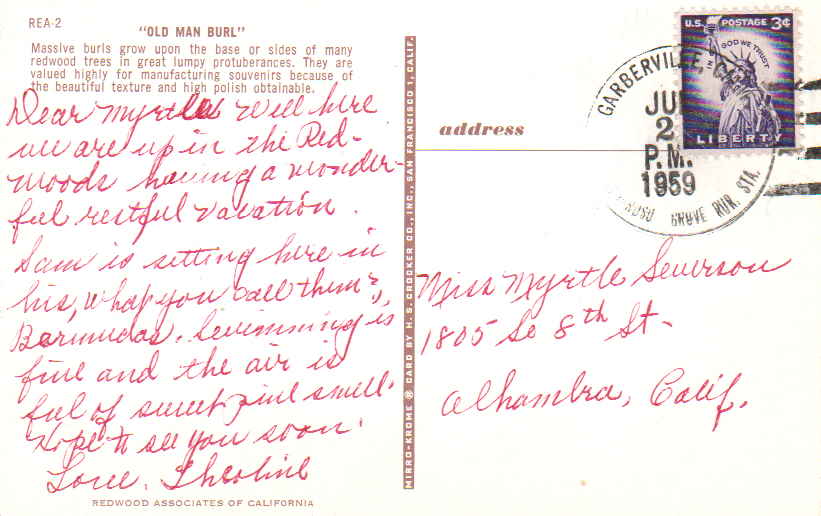 REA-2
"OLD MAN BURL"
Massive burls grow upon the base or sides of many
redwood trees in great lumpy protuberances. They are
valued highly for manufacturing souvenirs because of
the beautiful texture and high polish obtainable.
Dear Myrtle Well here
we are up in the Red-
woods having a wonder-
ful restful vacation.
Sam is setting here in
his, what you call them?,
Bermudas. Swimming is
fine and the air is
ful of sweet pine smell.
Hope to see you soon.
Love, Theoline
REDWOOD ASSOCIATES OF CALIFORNIA
MIRRO-KROME ® CARD BY H. S. CROCKER CO., INC., SAN FRANCISCO 1, CALIF.
address
U.S. POSTAGE 3¢
IN GOD WE TRUST
LIBERTY
GARBERVILLE, CA
2
P.M.
1959
GROVE RUR. STA.
Miss Myrtle Severson
1805 So 8th St.
Alhambra, Calif.